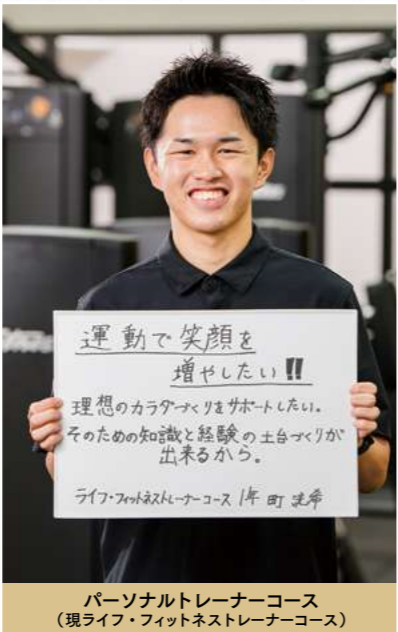 運動で笑顔を
増やしたい!!
理想のカラダづくりをサポートしたい。
そのための知識と経験の土台づくりが
出来るから。
ライフ・フィットネストレーナーコース 1年 町
パーソナルトレーナーコース
(現ライフ・フィットネストレーナーコース)